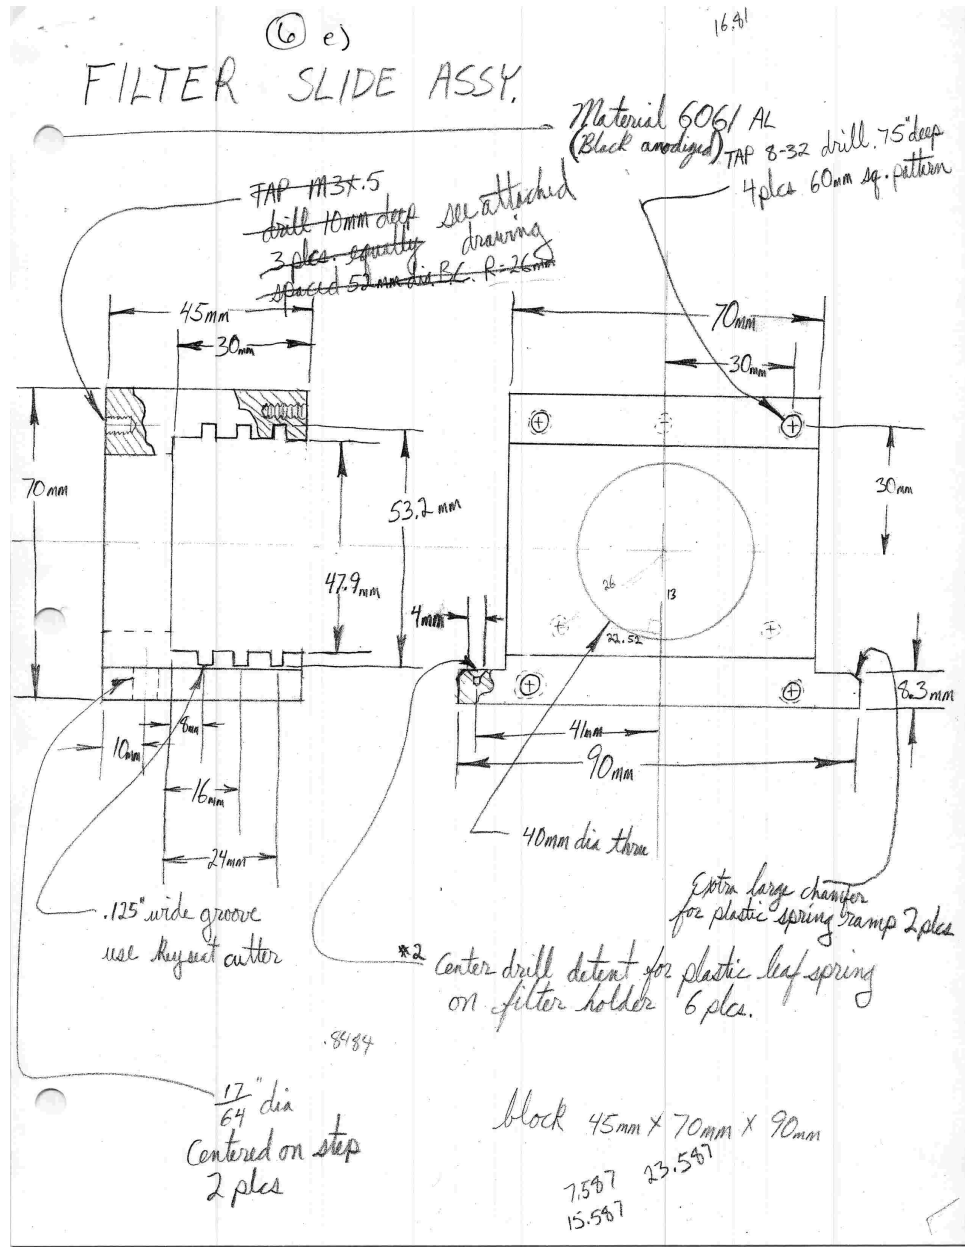 16.81
6 e)
FILTER SLIDE ASSY.
Material 6061 AL
(Black anodized)
TAP 8-32 drill .75" deep
4 plcs 60mm sq. pattern
TAP M3x.5
drill 10mm deep
3 plcs. equally
spaced 52mm dia. B.C. R=26mm
see attached
drawing
45mm
30mm
70mm
30mm
70mm
53.2mm
47.9mm
30mm
26
13
22.52
4mm
8.3mm
8mm
10mm
16mm
24mm
41mm
90mm
40mm dia thru
.125" wide groove
use Keyseat cutter
Extra large chamfer
for plastic spring ramp 2 plcs
*2 Center drill detent for plastic leaf spring
on filter holder 6 plcs.
.8484
17/64" dia
Centered on step
2 plcs
block 45mm X 70mm X 90mm
7.587 23.587
15.587